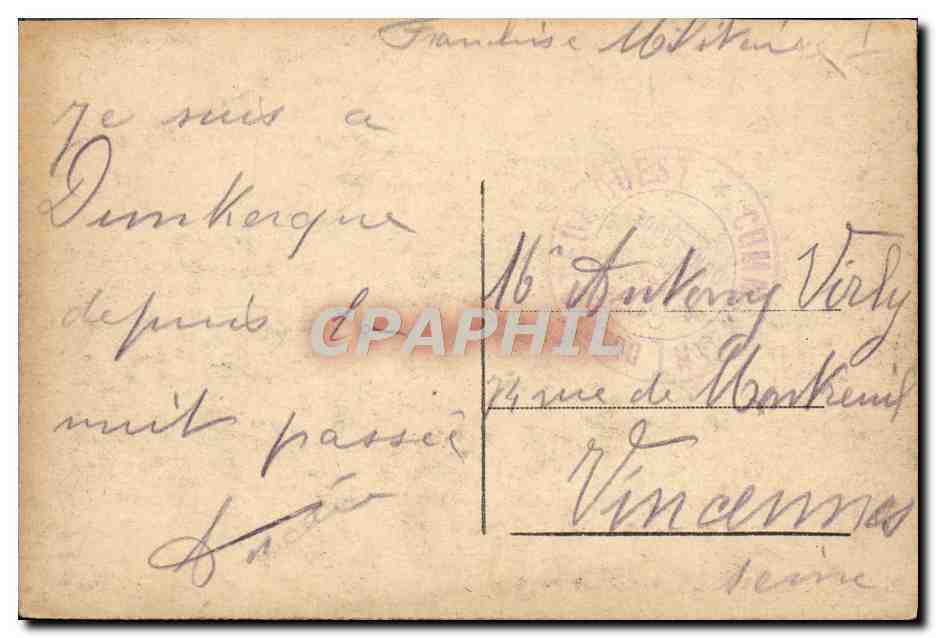 Franchise Militaire
Je suis a
Dunkerque
depuis la
nuit passée
André
OUEST * COMMA
Mr Antony Virly
74 rue de Montreuil
Vincennes
Seine
CPAPHIL